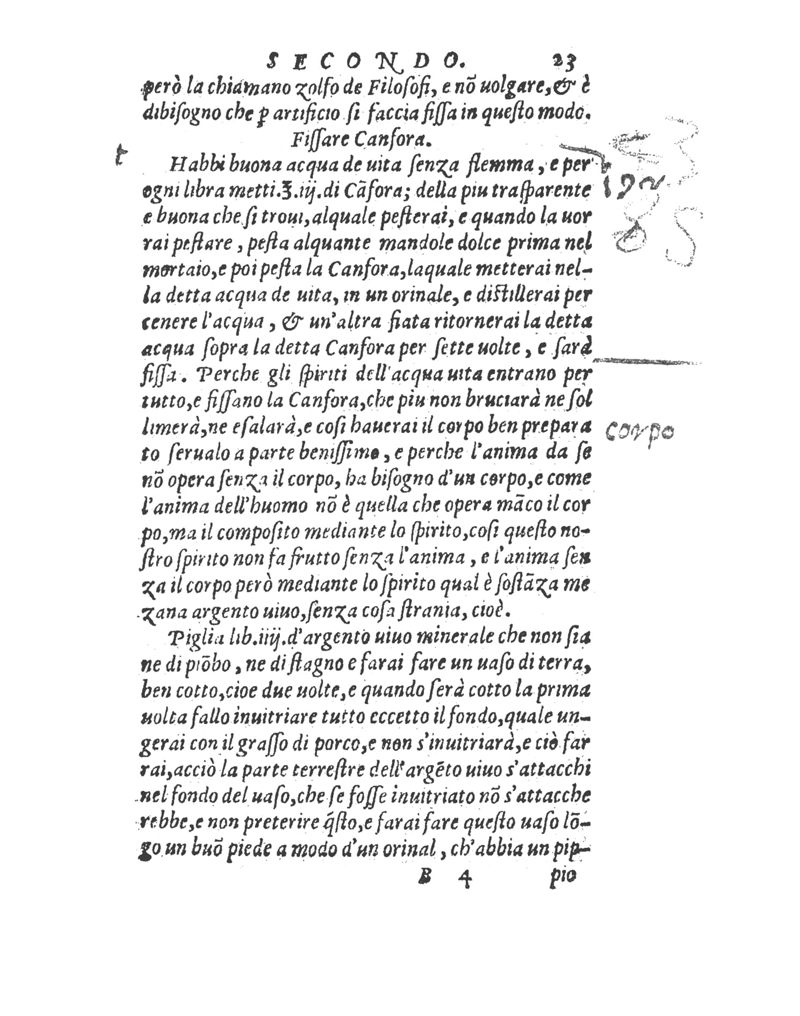 SECONDO. 23
però la chiamano zolfo de Filosofi, e nõ uolgare, & è
dibisogno che ꝑ artificio si faccia fissa in questo modo.
Fissare Canfora.
Habbi buona acqua de uita senza flemma, e per
ogni libra metti.℥.iij.di Cãfora; della piu trasparente
e buona che si troui, alquale pesterai, e quando la uor
rai pestare, pesta alquante mandole dolce prima nel
mortaio, e poi pesta la Canfora, laquale metterai nel-
la detta acqua de uita, in un orinale, e distillerai per
cenere l'acqua, & un'altra fiata ritornerai la detta
acqua sopra la detta Canfora per sette uolte, e sarà
fissa. Perche gli spiriti dell'acqua uita entrano per
tutto, e fissano la Canfora, che piu non bruciarà ne sol
limerà, ne esalarà, e cosi hauerai il corpo ben prepara
corpo
to serualo a parte benissimo, e perche l'anima da se
nõ opera senza il corpo, ha bisogno d'un corpo, e come
l'anima dell'huomo nõ è quella che opera mãco il cor
po, ma il composito mediante lo spirito, cosi questo no-
stro spirito non fa frutto senza l'anima, e l'anima sen
za il corpo però mediante lo spirito qual è sostãza me
zana argento uiuo, senza cosa strania, cioè.
Piglia lib.iiij.d'argento uiuo minerale che non sia
ne di piõbo, ne di stagno e farai fare un uaso di terra,
ben cotto, cioe due uolte, e quando serà cotto la prima
uolta fallo inuitriare tutto eccetto il fondo, quale un-
gerai con il grasso di porco, e non s'inuitriarà, e ciò far
rai, acciò la parte terrestre dell'argẽto uiuo s'attacchi
nel fondo del uaso, che se fosse inuitriato nõ s'attacche
rebbe, e non preterire q̃sto, e farai fare questo uaso lõ-
go un buõ piede a modo d'un orinal, ch'abbia un pip-
B 4 pio